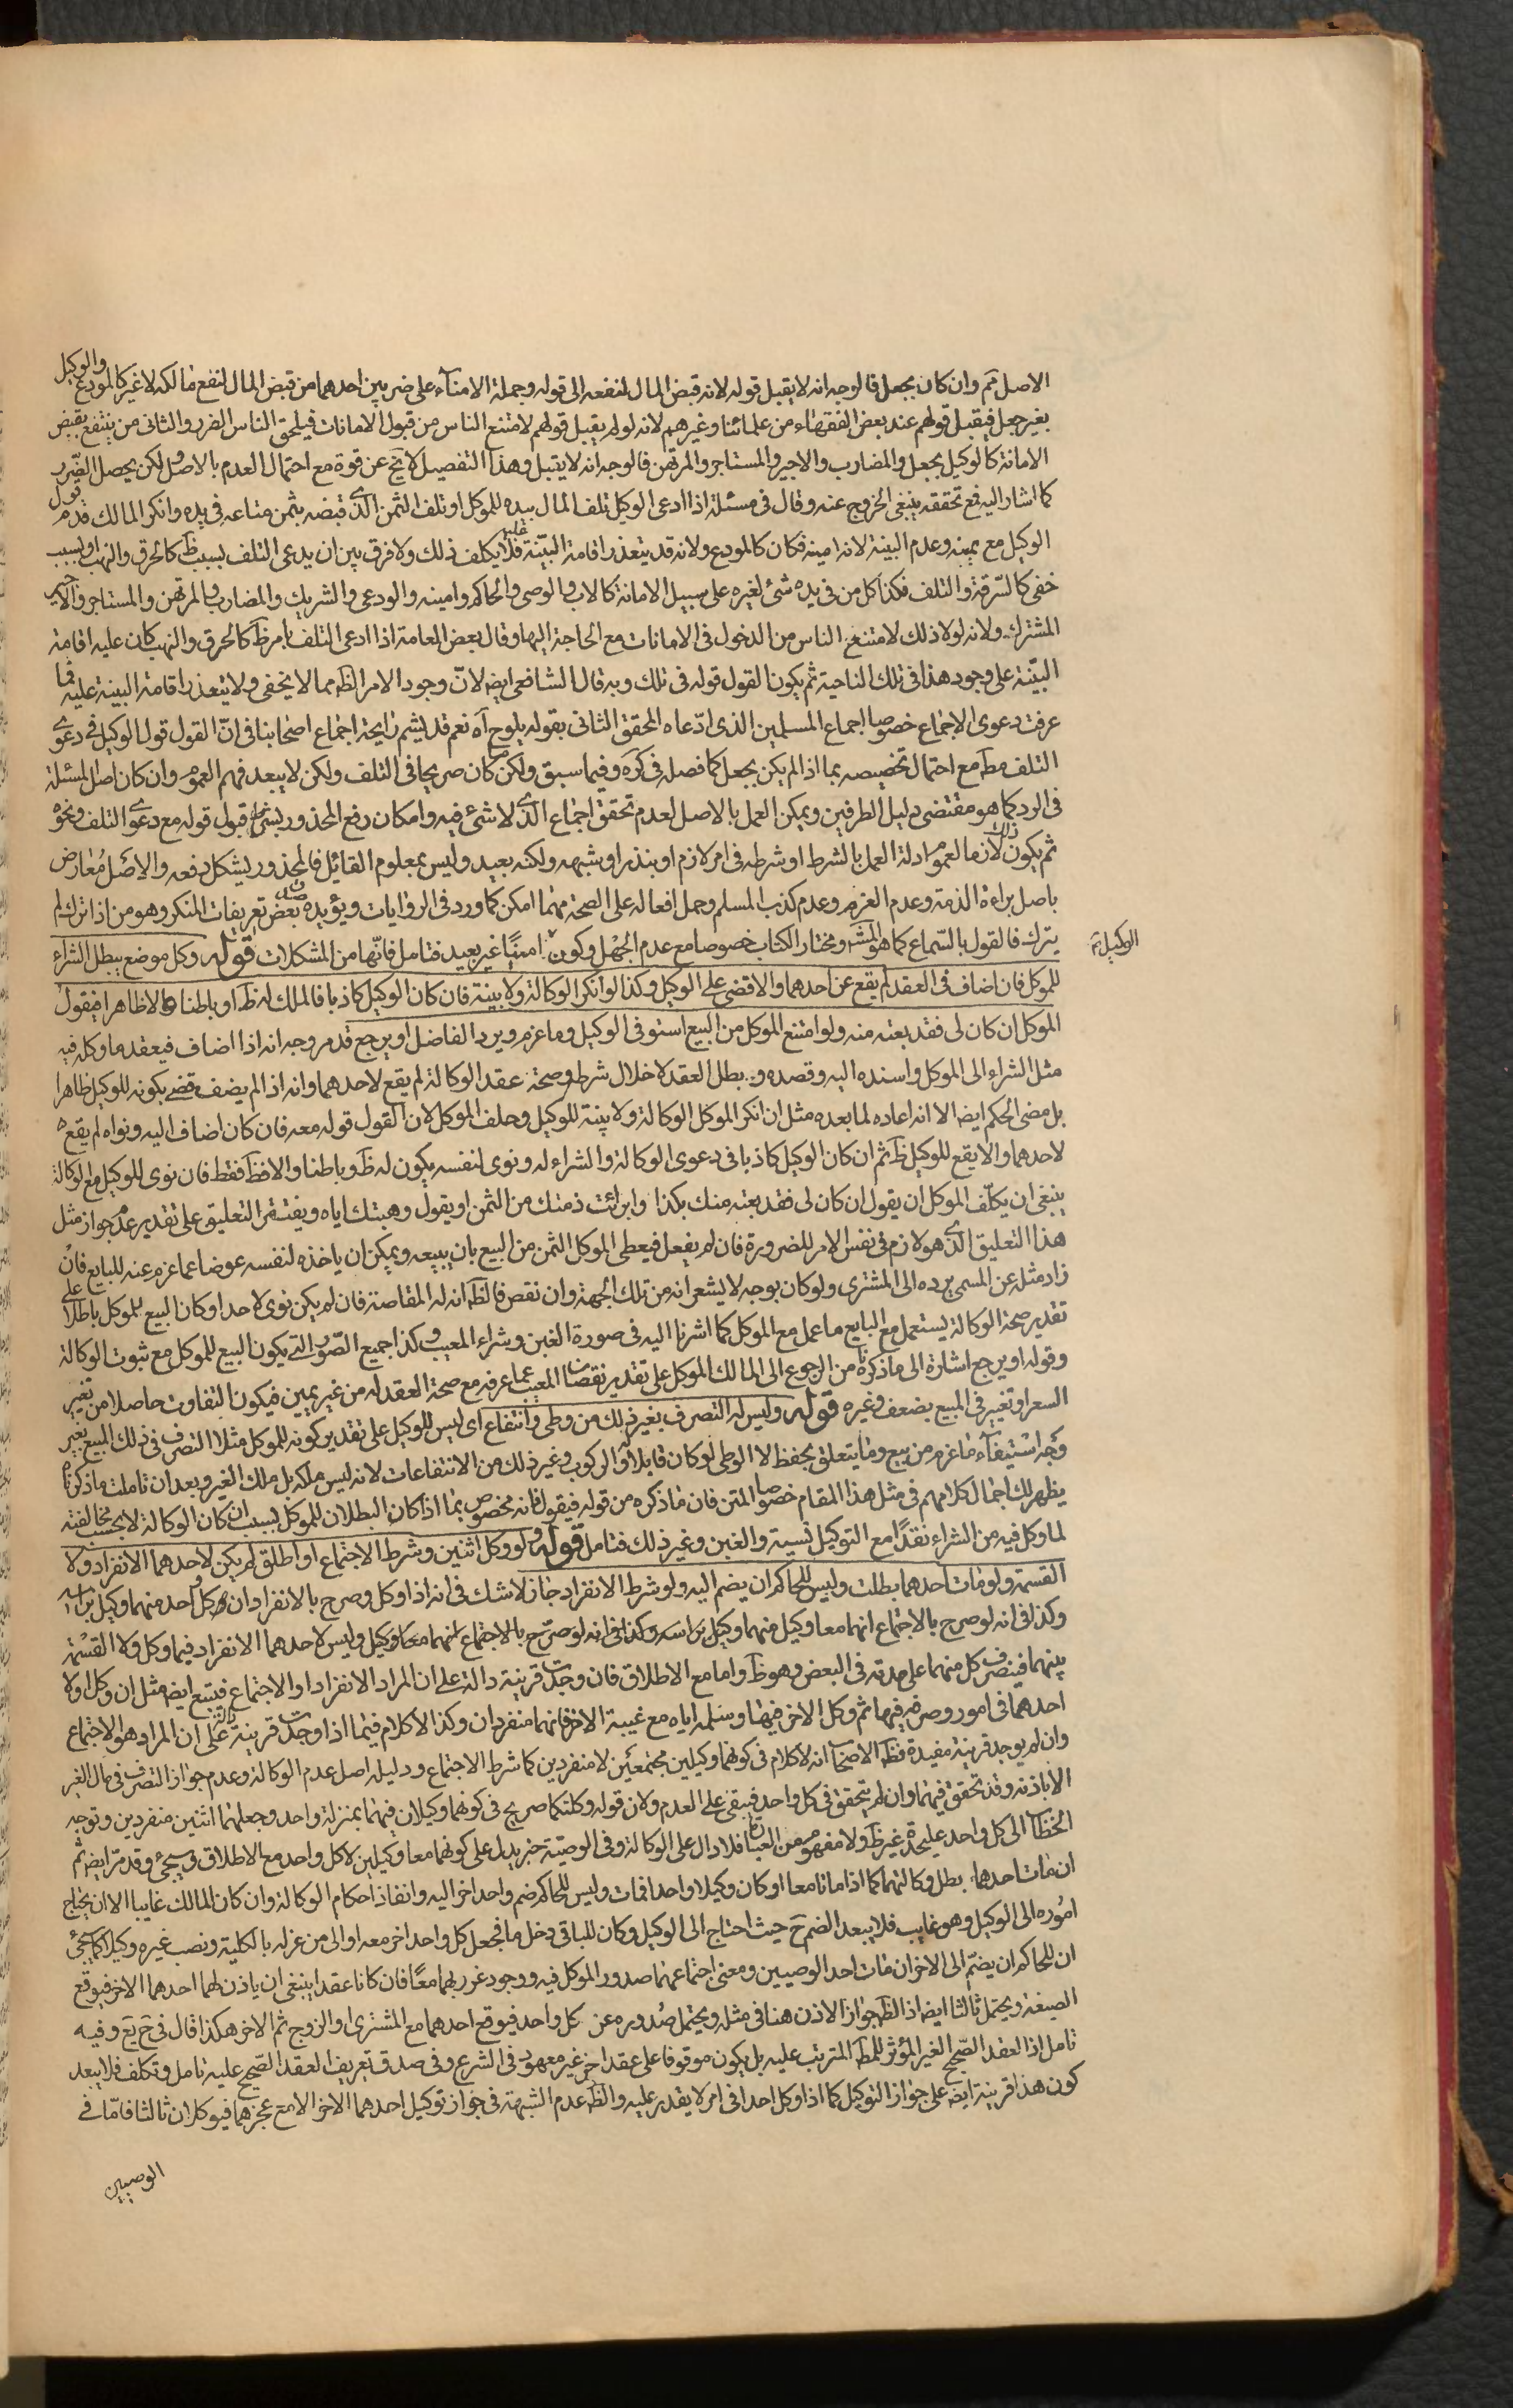 الاصل ثم وان كان بجعل فالوجه انه لا يقبل قوله لانه قبض المال لنفعه الى قوله وجملة الامنآء على ضربين احدهما من قبض المال لنفع مالكه لا غير كالمودع والوكيل
بغير جعل فيقبل قولهم عند بعض الفقهاء من علمائنا وغيرهم لانه لو لم يقبل قولهم لامتنع الناس من قبول الامانات فيلحق الناس الضرر والثانى من ينتفع بقبض
الامانة كالوكيل بجعل والمضارب والاجير والمستاجر والمرتهن فالوجه انه لا يقبل وهذا التفصيل لا يخ عن قوة مع احتمال العدم بالاصول لكن يحصل الضرر
كما اشار اليه فع تحققه ينبغى الخروج عنه وقال فى مسئلة اذا ادعى الوكيل تلف المال بيده للموكل او تلف الثمن الذى قبضه بثمن متاعه فى يده وانكر المالك قدم قول
الوكيل مع يمينه وعدم البينة لانه امينه فكان كالمودع ولانه قد يتعذر اقامة البيّنة عليه فلا يكلف ذلك ولا فرق بين ان يدعى التلف بسبب ظ كالحرق والنهب او بسبب
خفى كالسّرقة والتلف فكذا كل من فى يده شئ لغيره على سبيل الامانة كالاب والوصى والحاكم وامينه والودعى والشريك والمضارب والمرتهن والمستاجر والاجير
المشترك ولانه لولا ذلك لامتنع الناس من الدخول فى الامانات مع الحاجة اليها وقال بعض العامة اذا ادعى التلف بامر ظ كالحرق والنهب كان عليه اقامة
البيّنة على وجود هذا فى تلك الناحية ثم يكون القول قوله فى تلك وبه قال الشافعى ايضا لانّ وجود الامر الظ مما لا يخفى ولا يتعذر اقامة البينة عليه فما
عرفت دعوى الاجماع خصوصا اجماع المسلمين الذى ادّعاه المحقق الثانى بقوله يلوح آه نعم قد يشم رايحة اجماع اصحابنا فى انّ القول قول الوكيل فى دعوى
التلف مط مع احتمال تخصيصه بما اذا لم يكن بجعل كما فصله فى كره وفيما سبق ولكن كان صريحا فى التلف ولكن لا يبعد فهم العموم وان كان اصل المسئلة
فى الرد كما هو مقتضى دليل الطرفين ويمكن العمل بالاصل لعدم تحقق اجماع الذى لا شئ فيه وامكان رفع المحذور بشرط قبول قوله مع دعوى التلف ونحو
ثم يكون ذلك لازما لعموم ادلة العمل بالشرط او شرطه فى امر لازم او بنذر او شبهه ولكنه بعيد وليس بمعلوم القائل فالمحذور يشكل دفعه والاصل مُعارض
باصل براءة الذمة وعدم الغرم وعدم كذب المسلم وحمل افعاله على الصحة مهما امكن كما ورد فى الروايات ويؤيده بعض تعريفات المنكر وهو من اذا ترك لم
يترك فالقول بالسّماع كما هو المش ومختار الكتاب خصوصا مع عدم الجهل وكونه امينًا غير بعيد فتامل فانّها من المشكلات قوله وكل موضع يبطل الشراء
الوكيل ثم
للموكل فان اضاف فى العقد لم يقع عن احدهما والا قضى على الوكيل وكذا لو انكر الوكالة ولا بينة فان كان الوكيل كاذبا فالملك له ظ او باطنا والا ظاهرا فيقول
الموكل ان كان لى فقد بعته منه ولو امتنع الموكل من البيع استوفى الوكيل وما غرم ويرد الفاضل او يرجع قد مر وجه انه اذا اضاف فيعقد ما وكل فيه
مثل الشراء الى الموكل واسنده اليه وقصده وبطل العقد لاخلال شرط وصحة عقد الوكالة لم يقع لاحدهما وانه اذا لم يضف قضى بكونه للوكيل ظاهرا
بل مضى الحكم ايضا الا انه اعاده لما بعده مثل ان انكر الموكل الوكالة ولا بينة للوكيل وحلف الموكل لان القول قوله معه فان كان اضاف اليه ونواه لم يقع
لاحدهما والا يقع للوكيل ظ ثم ان كان الوكيل كاذبا فى دعوى الوكالة والشراء له ونوى لنفسه يكون له ظ وباطنا والا فظ فقط فان نوى للوكيل مع الوكالة
ينبغى ان يكلّف الموكل ان يقول ان كان لى فقد بعته منك بكذا وابرأت ذمتك من الثمن او يقول وهبتك اياه ويغتفر التعليق على تقدير عدم جواز مثل
هذا التعليق الذى هو لازم فى نفس الامر للضرورة فان لم يفعل فيعطى الموكل الثمن من البيع بان يبيعه ويمكن ان ياخذه لنفسه عوضا عما غرم عنه للبايع فان
زاد مثله عن المسمى يرده الى المشترى ولو كان بوجه لا يشعر انه من تلك الجهة وان نقص فالظ انه له المقاصة فان لم يكن نوى لاحد او كان البيع للموكل باطلا على
تقدير صحة الوكالة يستعمل مع البايع ما عمل مع الموكل كما اشرنا اليه فى صورة الغبن وشراء المعيب وكذا جميع الصّور التى يكون البيع للموكل مع ثبوت الوكالة
وقوله او يرجع اشارة الى ما ذكرنا من الرجوع الى المالك الموكل على تقدير نقصان المعيب عما عرفه مع صحة العقد له من غير يمين فيكون التفاوت حاصلا من تغير
السعر او تغير فى المبيع بضعف وغيره قوله وليس له التصرف بغير ذلك من وطى وانتفاع اى ليس للوكيل على تقدير كونه للموكل مثلا التصرف فى ذلك المبيع بغير
وجه استيفآء ما غرم من بيع وما يتعلق بحفظ لا الوطى لو كان قابلا له والركوب وغير ذلك من الانتفاعات لانه ليس ملكه بل ملك الغير وبعد ان تاملت ما ذكرناه
يظهر لك اجمال كلامهم فى مثل هذا المقام خصوصا المتن فان ما ذكره من قوله فيقول فانه مخصوص بما اذا كان البطلان للموكل بسبب انكار الوكالة لا بحسب مخالفته
لما وكل فيه من الشراء نقدًا مع التوكيل نسية والغبن وغير ذلك فتامل قوله ولو وكل اثنين وشرط الاجتماع او اطلق لم يكن لاحدهما الانفراد ولا
القسمة ولو مات احدهما بطلت وليس للحاكم ان يضم اليه ولو شرط الانفراد جاز لا شك فى انه اذا وكل وصرح بالانفراد ان كل واحد منهما وكيل براسه
وكذا فى انه لو صرح بالاجتماع انهما معا وكيل منهما وكيل براسه وكذا فى انه لو صرّح بالاجتماع انهما معا وكيل وليس لاحدهما الانفراد فيما وكل ولا القسمة
بينهما فيتصرف كل منهما على حدته فى البعض وهو ظ واما مع الاطلاق فان وجدت قرينة دالة على ان المراد الانفراد او الاجتماع فيتبع ايضا مثل ان وكل اولا
احدهما فى امور وصرفه فيها ثم وكل الاخر فيها وسلمه اياه مع غيبة الاخر فانهما منفردان وكذا لا كلام فيما اذا وجدت قرينة دالة على ان المراد هو الاجتماع
وان لم يوجد قرينة مفيدة فظ الاصحاب انه لا كلام فى كونهما وكيلين مجتمعين لا منفردين كما شرط الاجتماع ودليله اصل عدم الوكالة وعدم جواز التصرف فى مال الغير
الا باذنه وقد تحقق فيهما وان لم يتحقق فى كل واحد فيبقى على العدم ولان قوله وكلتكما صريح فى كونهما وكيلان فيهما بمنزلة واحد وجعلهما اثنين منفردين وتوجه
الخطاب الى كل واحد عليحدة غير ظ ولا مفهوم من العبارة فلا دال على الوكالة وفى الوصيّة خبر يدل على كونهما معا وكيلين لا كل واحد مع الاطلاق سيجئ وقد مر ايضا ثم
ان مات احدهما بطل وكالتهما كما اذا ماتا معا او كان وكيلا واحدا فمات وليس للحاكم ضم واحد اخر اليه وانفاذ احكام الوكالة وان كان المالك غايبا الا ان يحتاج
اموره الى الوكيل وهو غايب فلا يبعد الضم ح حيث احتاج الى الوكيل وكان للباقى دخل ما فجعل كل واحد اخر معه اولى من عزله بالكلية ونصب غيره وكيلا كما يجئ
ان للحاكم ان يضمّ الى الاخر ان مات احد الوصيين ومعنى اجتماعهما صدور الموكل فيه ووجوده غر ربهما معًا فان كانا عقدا ينبغى ان ياذن لهما احدهما الاخر فيوقع
الصيغة ويحتمل ثالثا ايضا اذ الظ جواز الاذن هنا فى مثله ويحتمل صُدوره عن كل واحد فيوقع احدهما مع المشترى او الزوج ثم الاخر هكذا قال فى ح يع وفيه
تامل اذ العقد الصّحيح الغير المؤثر للمط المترتب عليه بل يكون موقوفا على عقد اخر غير معهود فى الشرع وفى صدق تعريف العقد الصّحيح عليه تامل وتكلف فلا يبعد
كون هذا قرينة ايضا على جواز التوكيل كما اذا وكل احدا فى امر لا يقدر عليه والظ عدم الشبهة فى جواز توكيل احدهما الاخر الا مع عجزهما فيوكلان ثالثا فامّا فى
الوصيين